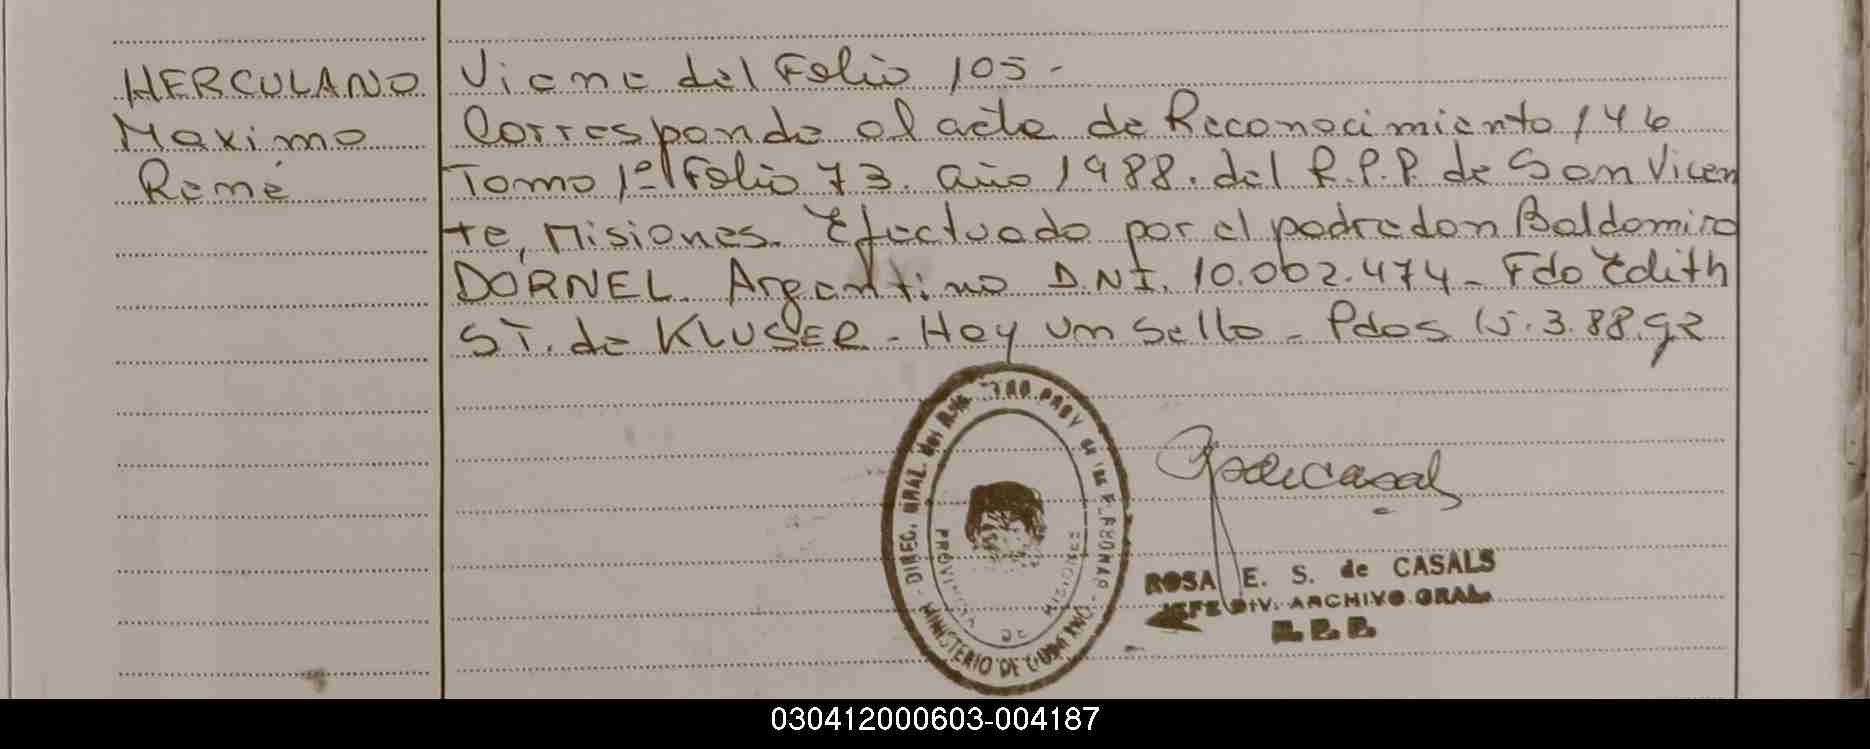 HERCULANO
Maximo
René
Viene del Folio 105-
Corresponde al acta de Reconocimiento 146
Tomo 1º Folio 73. año 1988. del R.P.P. de San Vicen
te, Misiones. Efectuado por el padre don Baldomiro
DORNEL. Argentino D.N.I. 10.002.474- Fdo Edith
ST. de KLUSER - Hay un sello - Pdos 15.3.88.
DIREC. GRAL. del PROV de las PERSONAS - MINISTERIO DE
PROVINCIA DE MISIONES
ROSA E. S. de CASALS
JEFE DIV. ARCHIVO GRAL.
R. P. P.
030412000603-004187